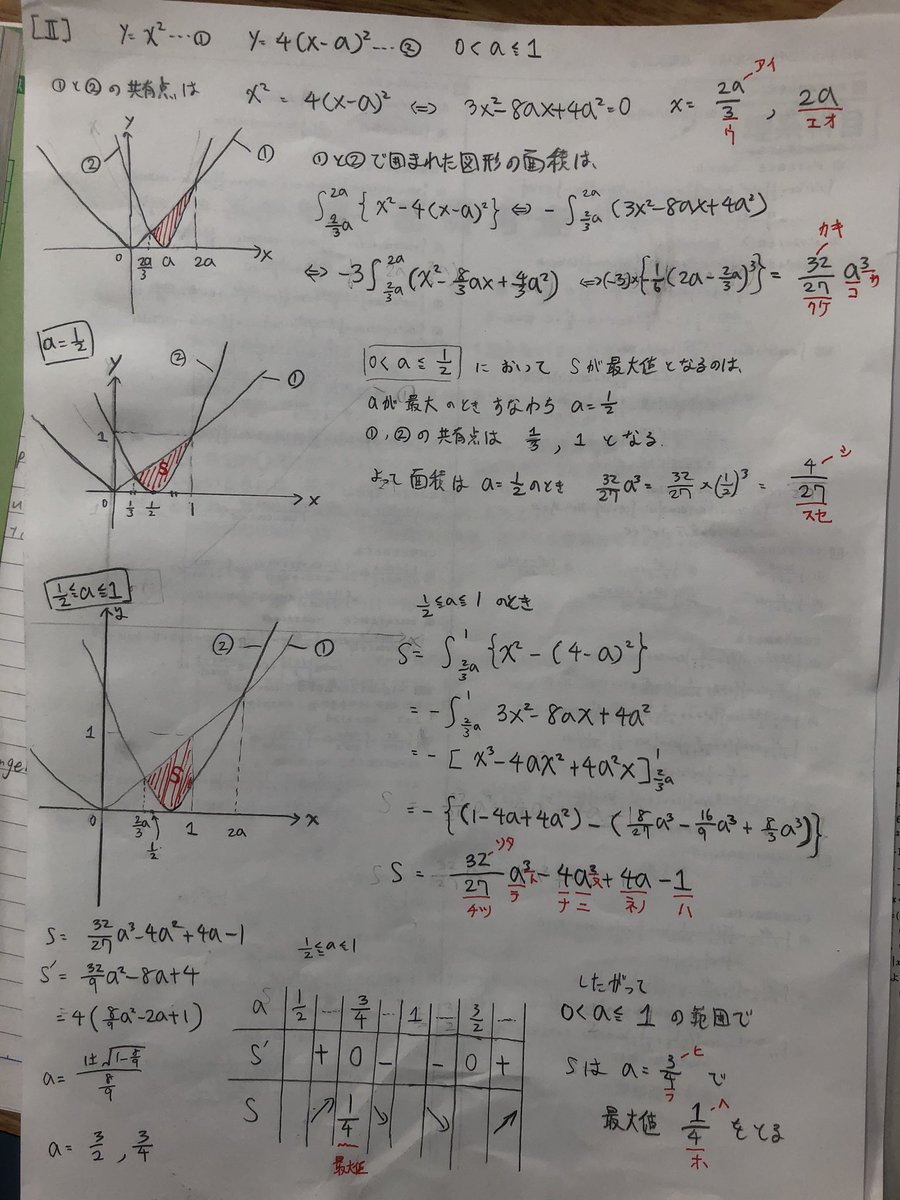 [II] y=x²…① y=4(x-a)²…② 0<a≦1
①と②の共有点は x²=4(x-a)² ⇔ 3x²-8ax+4a²=0 x=2a/3, 2a
アイ
ウ
エオ
y
② ①
0 2a/3 a 2a x
①と②で囲まれた図形の面積は、
∫_{2/3a}^{2a}{x²-4(x-a)²} ⇔ -∫_{2/3a}^{2a}(3x²-8ax+4a²)
⇔ -3∫_{2/3a}^{2a}(x²-8/3ax+4/3a²) ⇔(-3)×{-1/6(2a-2/3a)³}=32/27a³
カキ
クケ
コ
サ
a=1/2
y
② ①
1
S
0 1/3 1/2 1 x
0<a≦1/2 において Sが最大値となるのは、
aが最大のときすなわち a=1/2
①,②の共有点は 1/3, 1となる.
よって面積は a=1/2のとき 32/27a³=32/27×(1/2)³=4/27
シ
スセ
1/2≦a≦1
y
② ①
1
S
0 2a/3 1/2 1 2a x
1/2≦a≦1 のとき
S=∫_{2/3a}^{1}{x²-(4-a)²}
=-∫_{2/3a}^{1} 3x²-8ax+4a²
=-[x³-4ax²+4a²x]_{2/3a}^{1}
=-{(1-4a+4a²)-(8/27a³-16/9a³+8/3a³)}
S=32/27a³-4a²+4a-1
ソタ
チツ
テ
ト
ナニ
ヌ
ネノ
ハ
S=32/27a³-4a²+4a-1
S'=32/9a²-8a+4
=4(8/9a²-2a+1)
a=(1±√(1-8/9))/(8/9)
a=3/2, 3/4
1/2≦a≦1
a 1/2 … 3/4 … 1 … 3/2 …
S' + 0 - - 0 +
S ↗ 1/4 ↘ ↘ ↗
最大値
したがって
0<a≦1の範囲で
Sは a=3/4で
ヒ
フ
最大値 1/4をとる
ヘ
ホ